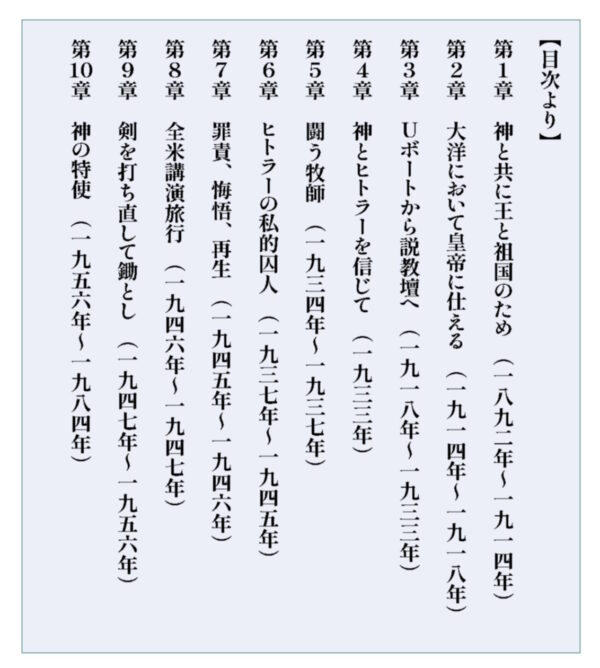 【目次より】
第1章 神と共に王と祖国のため (一八九二年〜一九一四年)
第2章 大洋において皇帝に仕える (一九一四年〜一九一八年)
第3章 Uボートから説教壇へ (一九一八年〜一九三三年)
第4章 神とヒトラーを信じて (一九三三年)
第5章 闘う牧師 (一九三四年〜一九三七年)
第6章 ヒトラーの私的囚人 (一九三七年〜一九四五年)
第7章 罪責、悔悟、再生 (一九四五年〜一九四六年)
第8章 全米講演旅行 (一九四六年〜一九四七年)
第9章 剣を打ち直して鋤とし (一九四七年〜一九五六年)
第10章 神の特使 (一九五六年〜一九八四年)